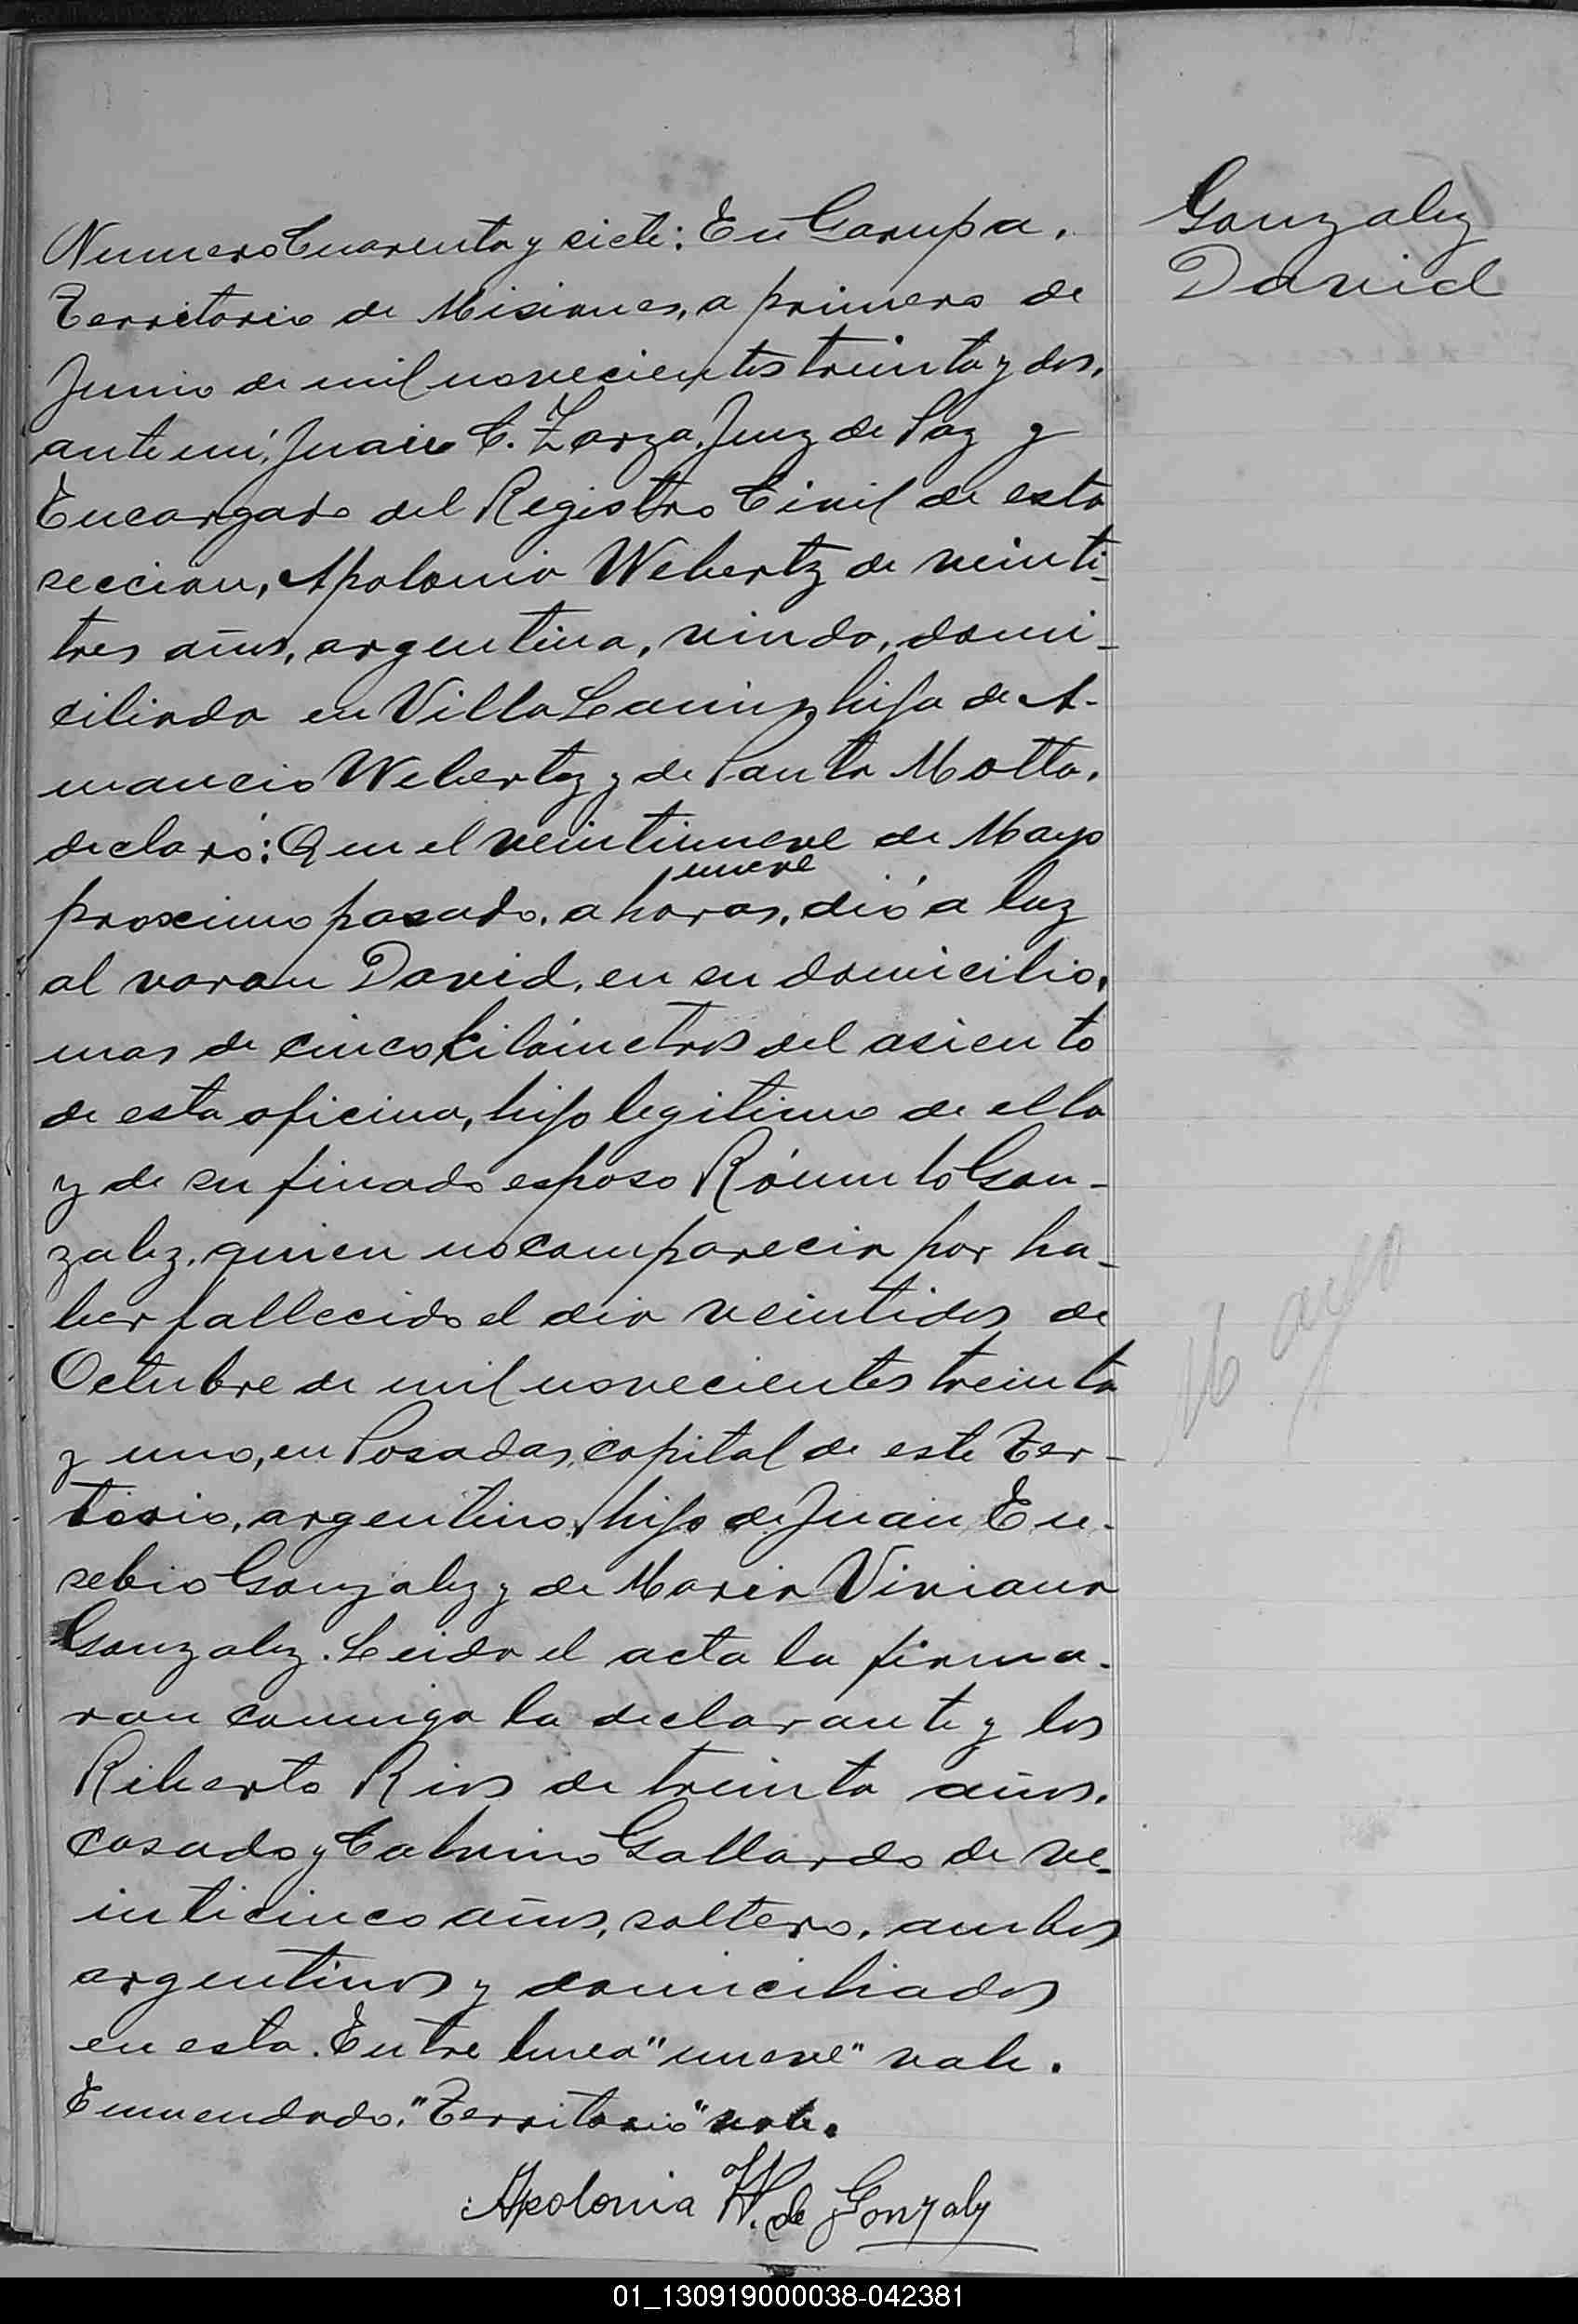 Gonzalez
David
Numero Cuarenta y siete: En Garupa,
Territorio de Misiones, a primero de
Junio de mil novecientos treinta y dos,
ante mí, Juan C. Zarza, Juez de Paz y
Encargado del Registro Civil de esta
seccion, Apolonia Webertz de veinti-
tres años, argentina, viuda, domi-
ciliada en Villa Lanús, hija de A-
mancio Webertz y de Santa Motta,
declaró: Que el veintinueve de Mayo
nueve
proximo pasado, a horas, dió a luz
al varon David, en su domicilio,
mas de cinco kilómetros del asiento
de esta oficina, hijo legitimo de ella
y de su finado esposo Rómulo Gon-
zalez, quien no comparecia por ha-
ber fallecido el dia veintidos de
Octubre de mil novecientos treinta
y uno, en Posadas, capital de este Ter-
torio, argentino, hijo de Juan Eu-
sebio Gonzalez y de Maria Viviana
Gonzalez. Leida el acta la firma-
ron conmigo la declarante y los
Riberto Rios de treinta años,
casado y Gallardo de ve-
inticinco años, soltero, ambos
argentinos y domiciliados
en esta. Entre linea "nueve" vale.
Enmendado: "Territorio" vale.
Apolonia W. de Gonzalez
Mayo
01_130919000038-042381